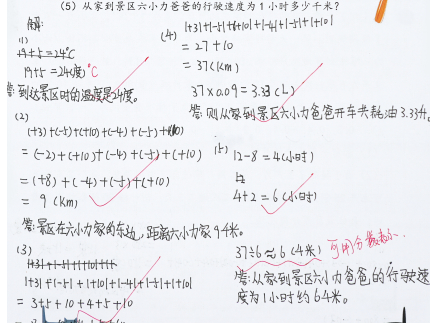 (5) 从家到景区六小力爸爸的行驶速度为1小时多少千米?
解:
(1)
19+5=24℃
19+5=24(度)℃
答:到达景区时的温度是24度。
(2)
(+3)+(-5)+(+10)+(-4)+(-5)+(+10)
=(-2)+(+10)+(-4)+(-5)+(+10)
=(+8)+(-4)+(-5)+(+10)
=9(km)
答:景区在六小力家的东边,距离六小力家9千米。
(3)
|+3|+|-5|+|+10|+|-4|+|-5|+|+10|
=3+5+10+4+5+10
(4)
|+3|+|-5|+|+10|+|-4|+|-5|+|+10|
=27+10
=37(km)
37×0.09=3.33(L)
答:则从家到景区六小力爸爸开车共耗油3.33升。
(5) 12-8=4(小时)
4+2=6(小时)
37÷6≈6(千米) 可用分数表示.
答:从家到景区六小力爸爸的行驶速
度为1小时约6千米。